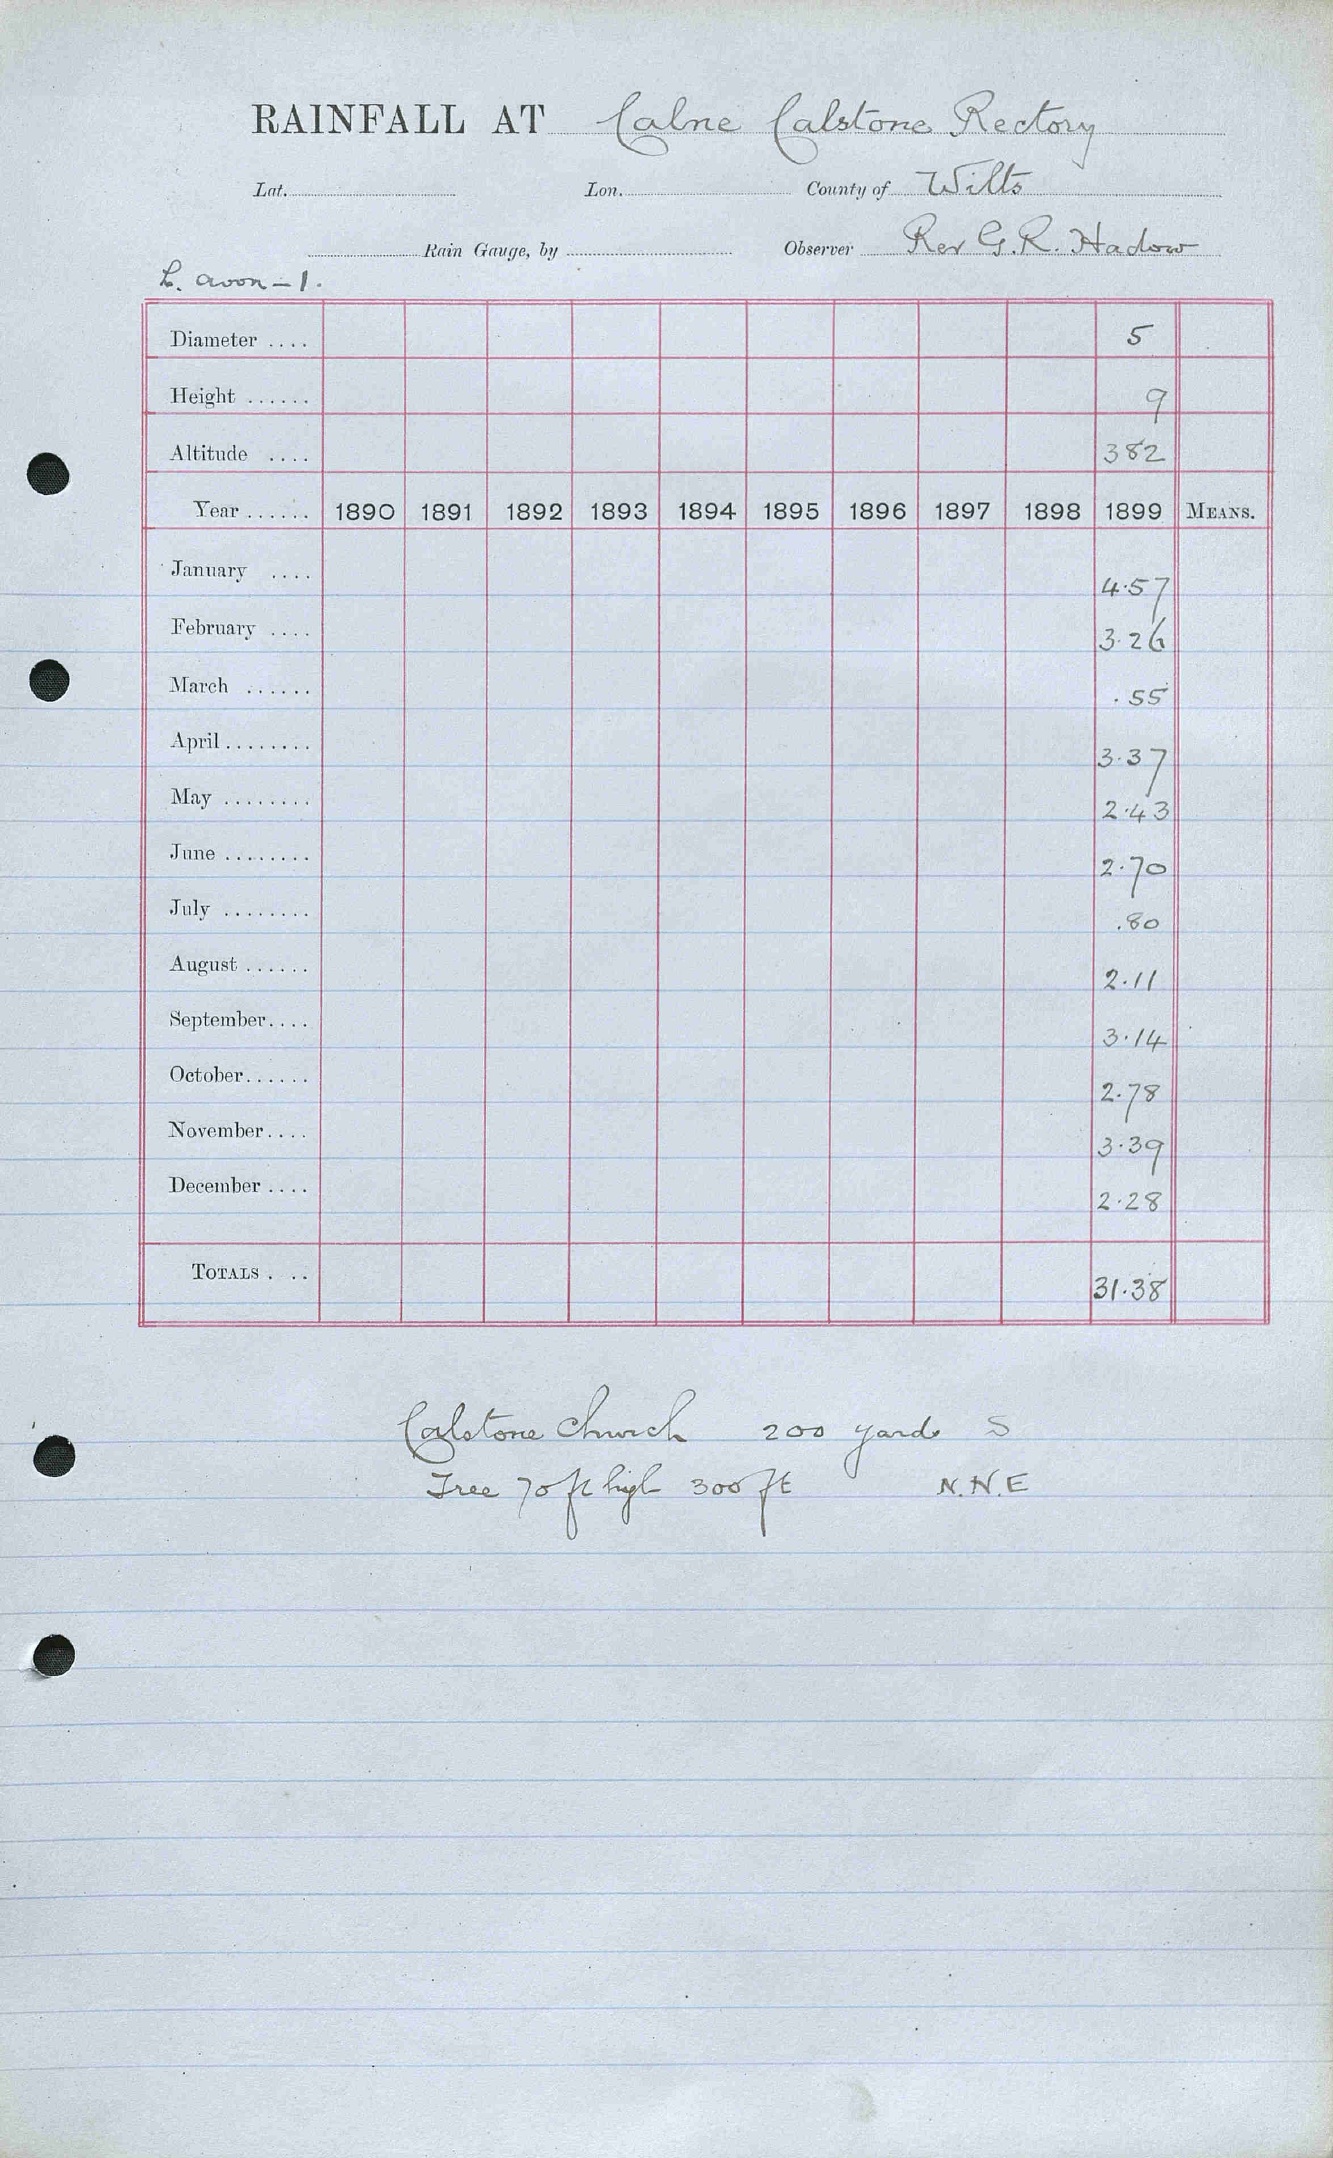 RAINFALL AT Calne Calstone Rectory
Lat. Lon. County of Wilts
Rain Gauge, by Observer Rev G. R. Hadow
L. Avon - 1.
Diameter .... 5
Height ...... 9
Altitude .... 382
Year ...... 1890 1891 1892 1893 1894 1895 1896 1897 1898 1899 MEANS.
January .... 4.57
February .... 3.26
March ...... .55
April ........ 3.37
May ........ 2.43
June ........ 2.70
July ........ .80
August ...... 2.11
September.... 3.14
October...... 2.78
November.... 3.39
December .... 2.28
TOTALS . .. 31.38
Calstone Church 200 yards S
Tree 70 ft high 300 ft N.N.E